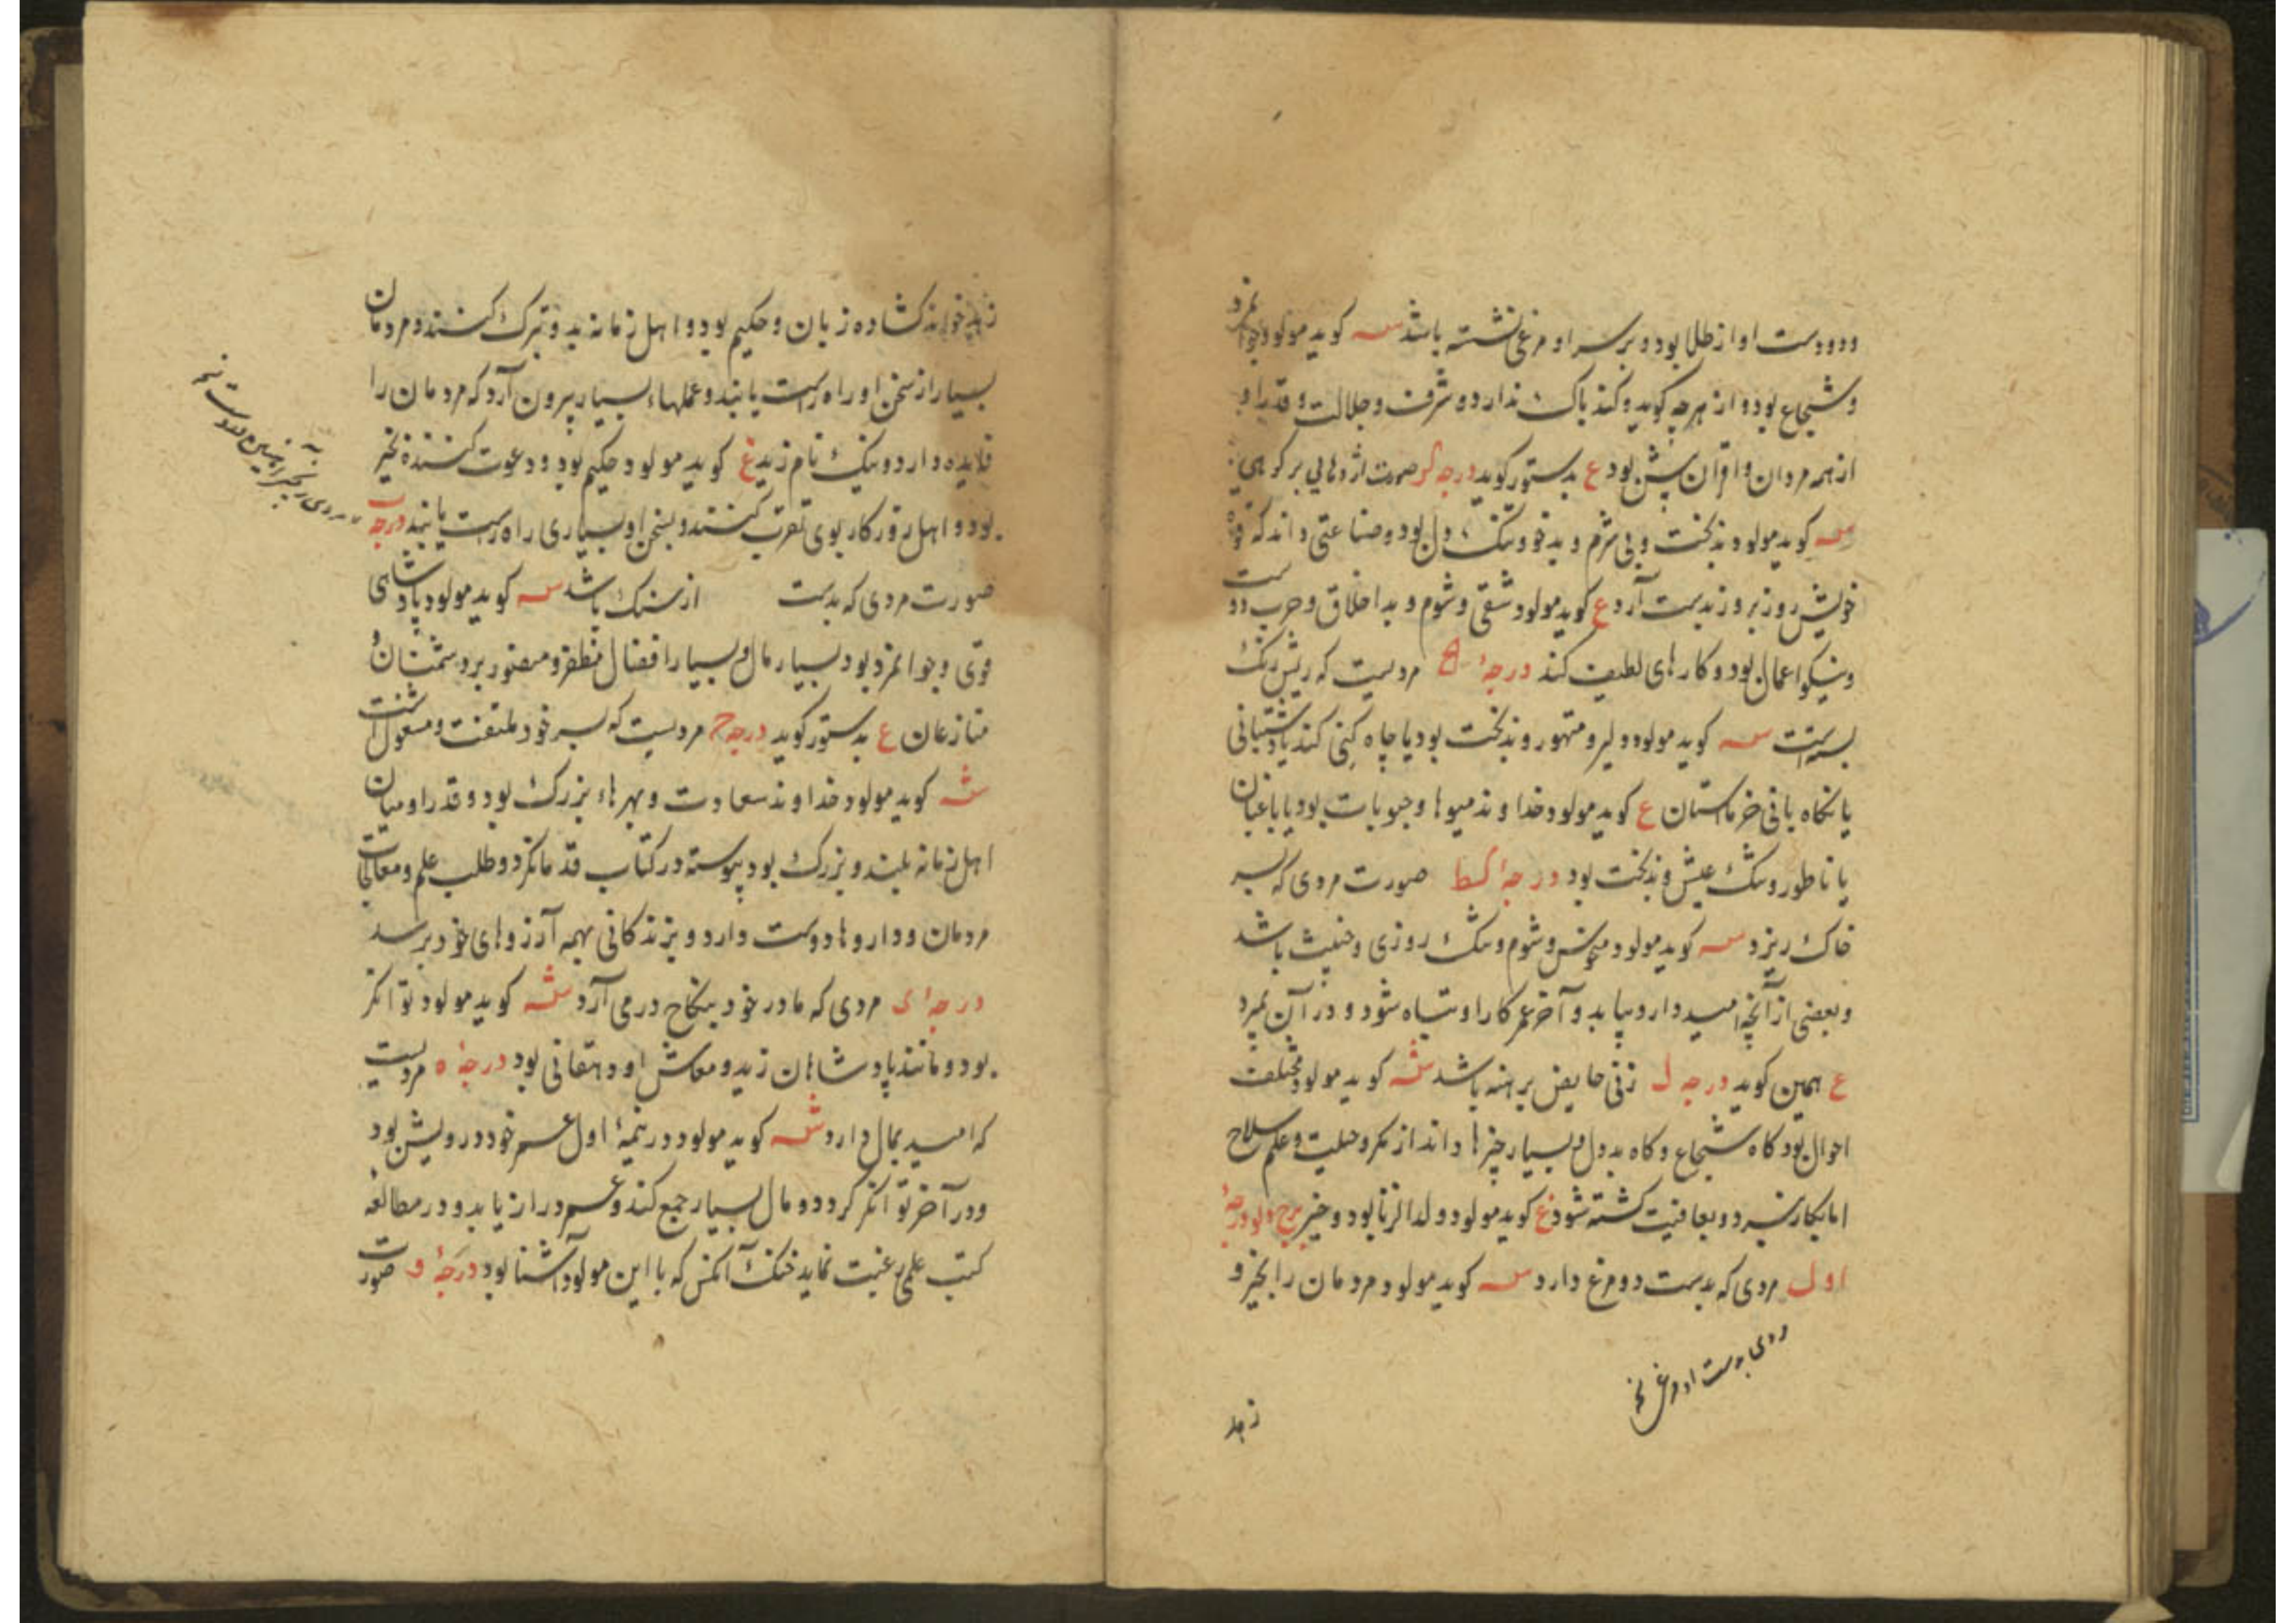 ودو دست او از طلا بود و بر سر او مرغی نشسته باشد سه کوید مولود جوانمرد
و شجاع بود و از هرچه کوید و کند باک ندارد و شرف و جلالت و قدر او
از همه مردان و اقران پیش بود ع بدستور کوید درجه کز صورت اژدهایی بر کوهی
سه کوید مولود بدبخت و بی شرم و بدخو و تنک دل بود و صناعتی داند که قوة
خویش روز بروز بدست آرد ع کوید مولود شقی و شوم و بد اخلاق و حرب دوست
و نیکو اعمال بود و کارهای لطیف کند درجهٔ مردیست که ریش رنک
بسته است سه کوید مولود دلیر و متهور و بدبخت بود یا چاه کنی کند یا دشتبانی
یا نکاه بانی خرماستان ع کوید مولود خداوند میوها و حبوبات بود یا باغبان
یا ناطور و تنک عیش و بدبخت بود درجهٔ کط صورت مردی که بسر
خاک ریزد سه کوید مولود منحوس و شوم و تنک روزی و خبیث باشد
و بعضی از آنچه امید دارد بیابد و آخر عمر کار او تباه شود و در آن بمیرد
ع همین کوید درجه ل زنی حایض برهنه باشد سه کوید مولود مختلف
احوال بود کاه شجاع و کاه بددل و بسیار چیزها داند از مکر و حیلت و علم سلاح
اما بکار نبرد و بعاقبت کشته شود ع کوید مولود ولد الزنا بود و خبیر برج دلو درجهٔ
اول مردی که بدست دو مرغ دارد سه کوید مولود مردمان را بخیر و
بدست او مرغ
زهد
زهد خواند کشاده زبان و حکیم بود و اهل زمانه بدو تبرک کنند و مردمان
بسیار از سخن او راه راست یابند و عملهاء بسیار بیرون آرد که مردمان را
فایده دارد و نیک نام زید ع کوید مولود حکیم بود و دعوت کننده بخیر
بود و اهل روزکار بوی تقرب کنند و بسخن او بسیاری راه راست یابند درجه ب
صورت مردی که بدست از سنک باشد سه کوید مولود پادشاهی
قوی و جوانمرد بود بسیار مال و بسیار افضال مظفر و منصور بر دشمنان و
منازعان ع بدستور کوید درجه ج مردیست که بسر خود ملتفت و مشغول است
سه کوید مولود خداوند سعادت و بهرهاء بزرک بود و قدر او میان
اهل زمانه بلند و بزرک بود پیوسته در کتاب قدما نکرد و طلب علم و معالجات
مردمان و داروها دوست دارد و بزندکانی بهمه آرزوهای خود برسد
درجهٔ د مردی که مادر خود بنکاح در می آرد سه کوید مولود توانکر
بود و مانند پادشاهان زید و معاش او دهقانی بود درجهٔ ه مردیست
که امید بمال دارد سه کوید مولود در نیمهٔ اول عمر خود درویش بود
و در آخر توانکر کردد و مال بسیار جمع کند و عمر دراز یابد و در مطالعه
کتب علمی رغبت نماید خنک آنکس که با این مولود آشنا بود درجهٔ و صورت